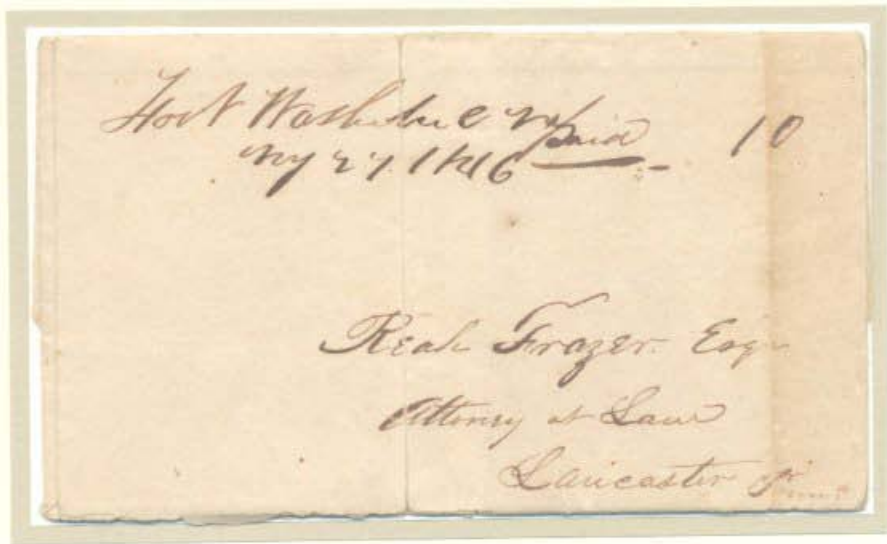 Fort Washita C N Paid 10
My 27. 1846
Reah Frazer. Esq
Attorney at Law
Lancaster Pa